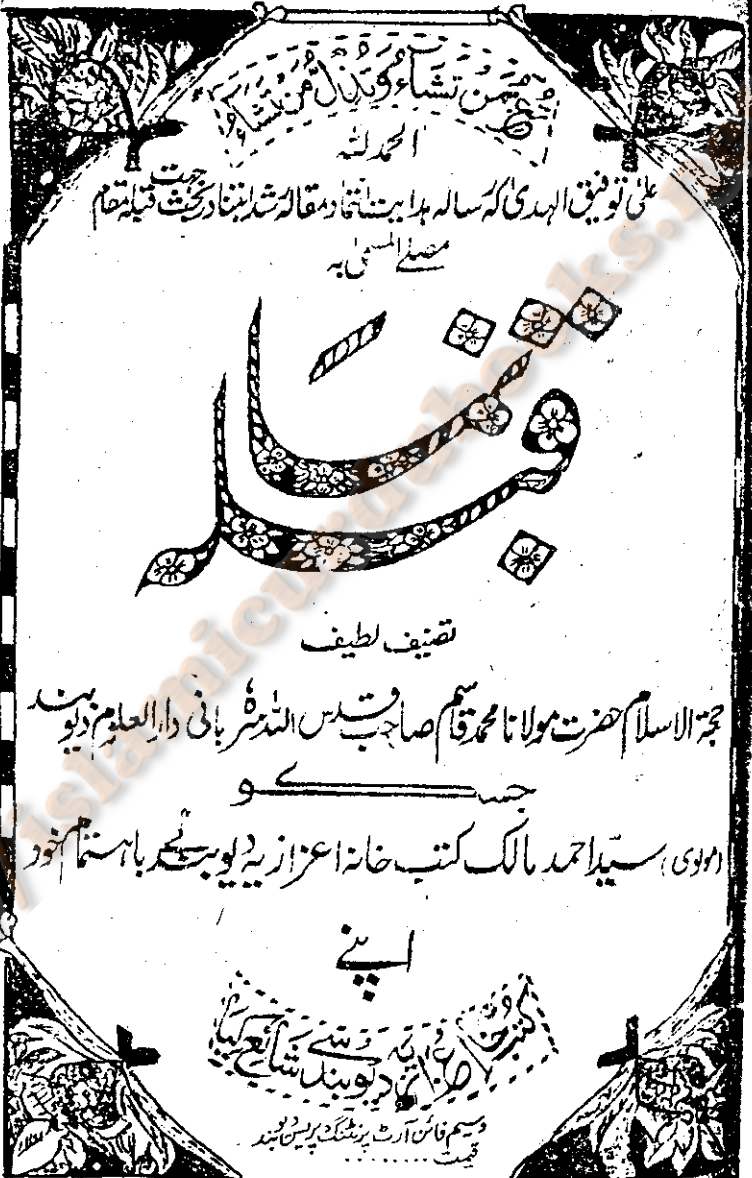 تعز من تشاء وتذل من تشاء
الحمد للہ
علیٰ توفیق الہدیٰ کہ رسالہ ہدایت انتما و مقالہ رشد ابتنا در بحث جہت قبلہ مقام
مصلے المسمیٰ بہ
قبلہ نما
تصنیف لطیف
حجۃ الاسلام حضرت مولانا محمد قاسم صاحب قدس اللہ سرہ بانی دار العلوم دیوبند
جس کو
(مولوی) سید احمد مالک کتب خانہ اعزازیہ دیوبند نے باہتمام خود
اپنے
کتب خانہ
اعزازیہ دیوبند سے شائع کیا
وسیم فائن آرٹ پرنٹنگ پریس دیوبند
قیمت ........
islamicurdubooks.